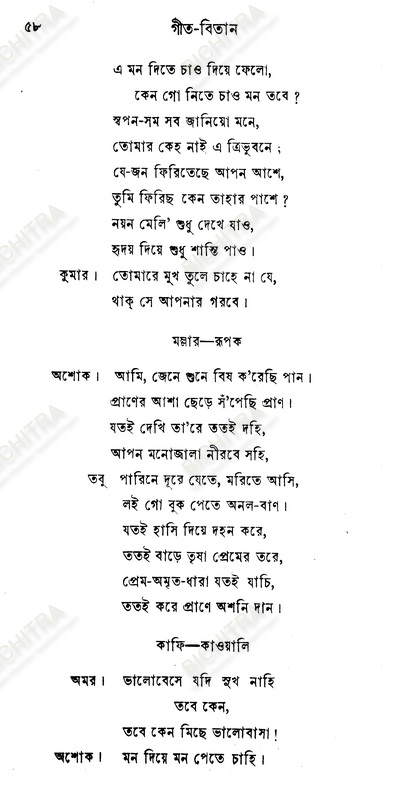 ৫৮ গীত-বিতান
এ মন দিতে চাও দিয়ে ফেলো,
কেন গো নিতে চাও মন তবে ?
স্বপন-সম সব জানিয়ো মনে,
তোমার কেহ নাই এ ত্রিভুবনে ;
যে-জন ফিরিতেছে আপন আশে,
তুমি ফিরিছ কেন তাহার পাশে ?
নয়ন মেলি' শুধু দেখে যাও,
হৃদয় দিয়ে শুধু শান্তি পাও ।
কুমার । তোমারে মুখ তুলে চাহে না যে,
থাক্ সে আপনার গরবে ।
মল্লার—রূপক
অশোক । আমি, জেনে শুনে বিষ ক'রেছি পান ।
প্রাণের আশা ছেড়ে সঁ'পেছি প্রাণ ।
যতই দেখি তা'রে ততই দহি,
আপন মনোজালা নীরবে সহি,
তবু পারিনে দূরে যেতে, মরিতে আসি,
লই গো বুক পেতে অনল-বাণ ।
যতই হাসি দিয়ে দহন করে,
ততই বাড়ে তৃষা প্রেমের তরে,
প্রেম-অমৃত-ধারা যতই যাচি,
ততই করে প্রাণে অশনি দান ।
কাফি—কাওয়ালি
অমর । ভালোবেসে যদি সুখ নাহি
তবে কেন,
তবে কেন মিছে ভালোবাসা !
অশোক । মন দিয়ে মন পেতে চাহি ।
BICHITRA